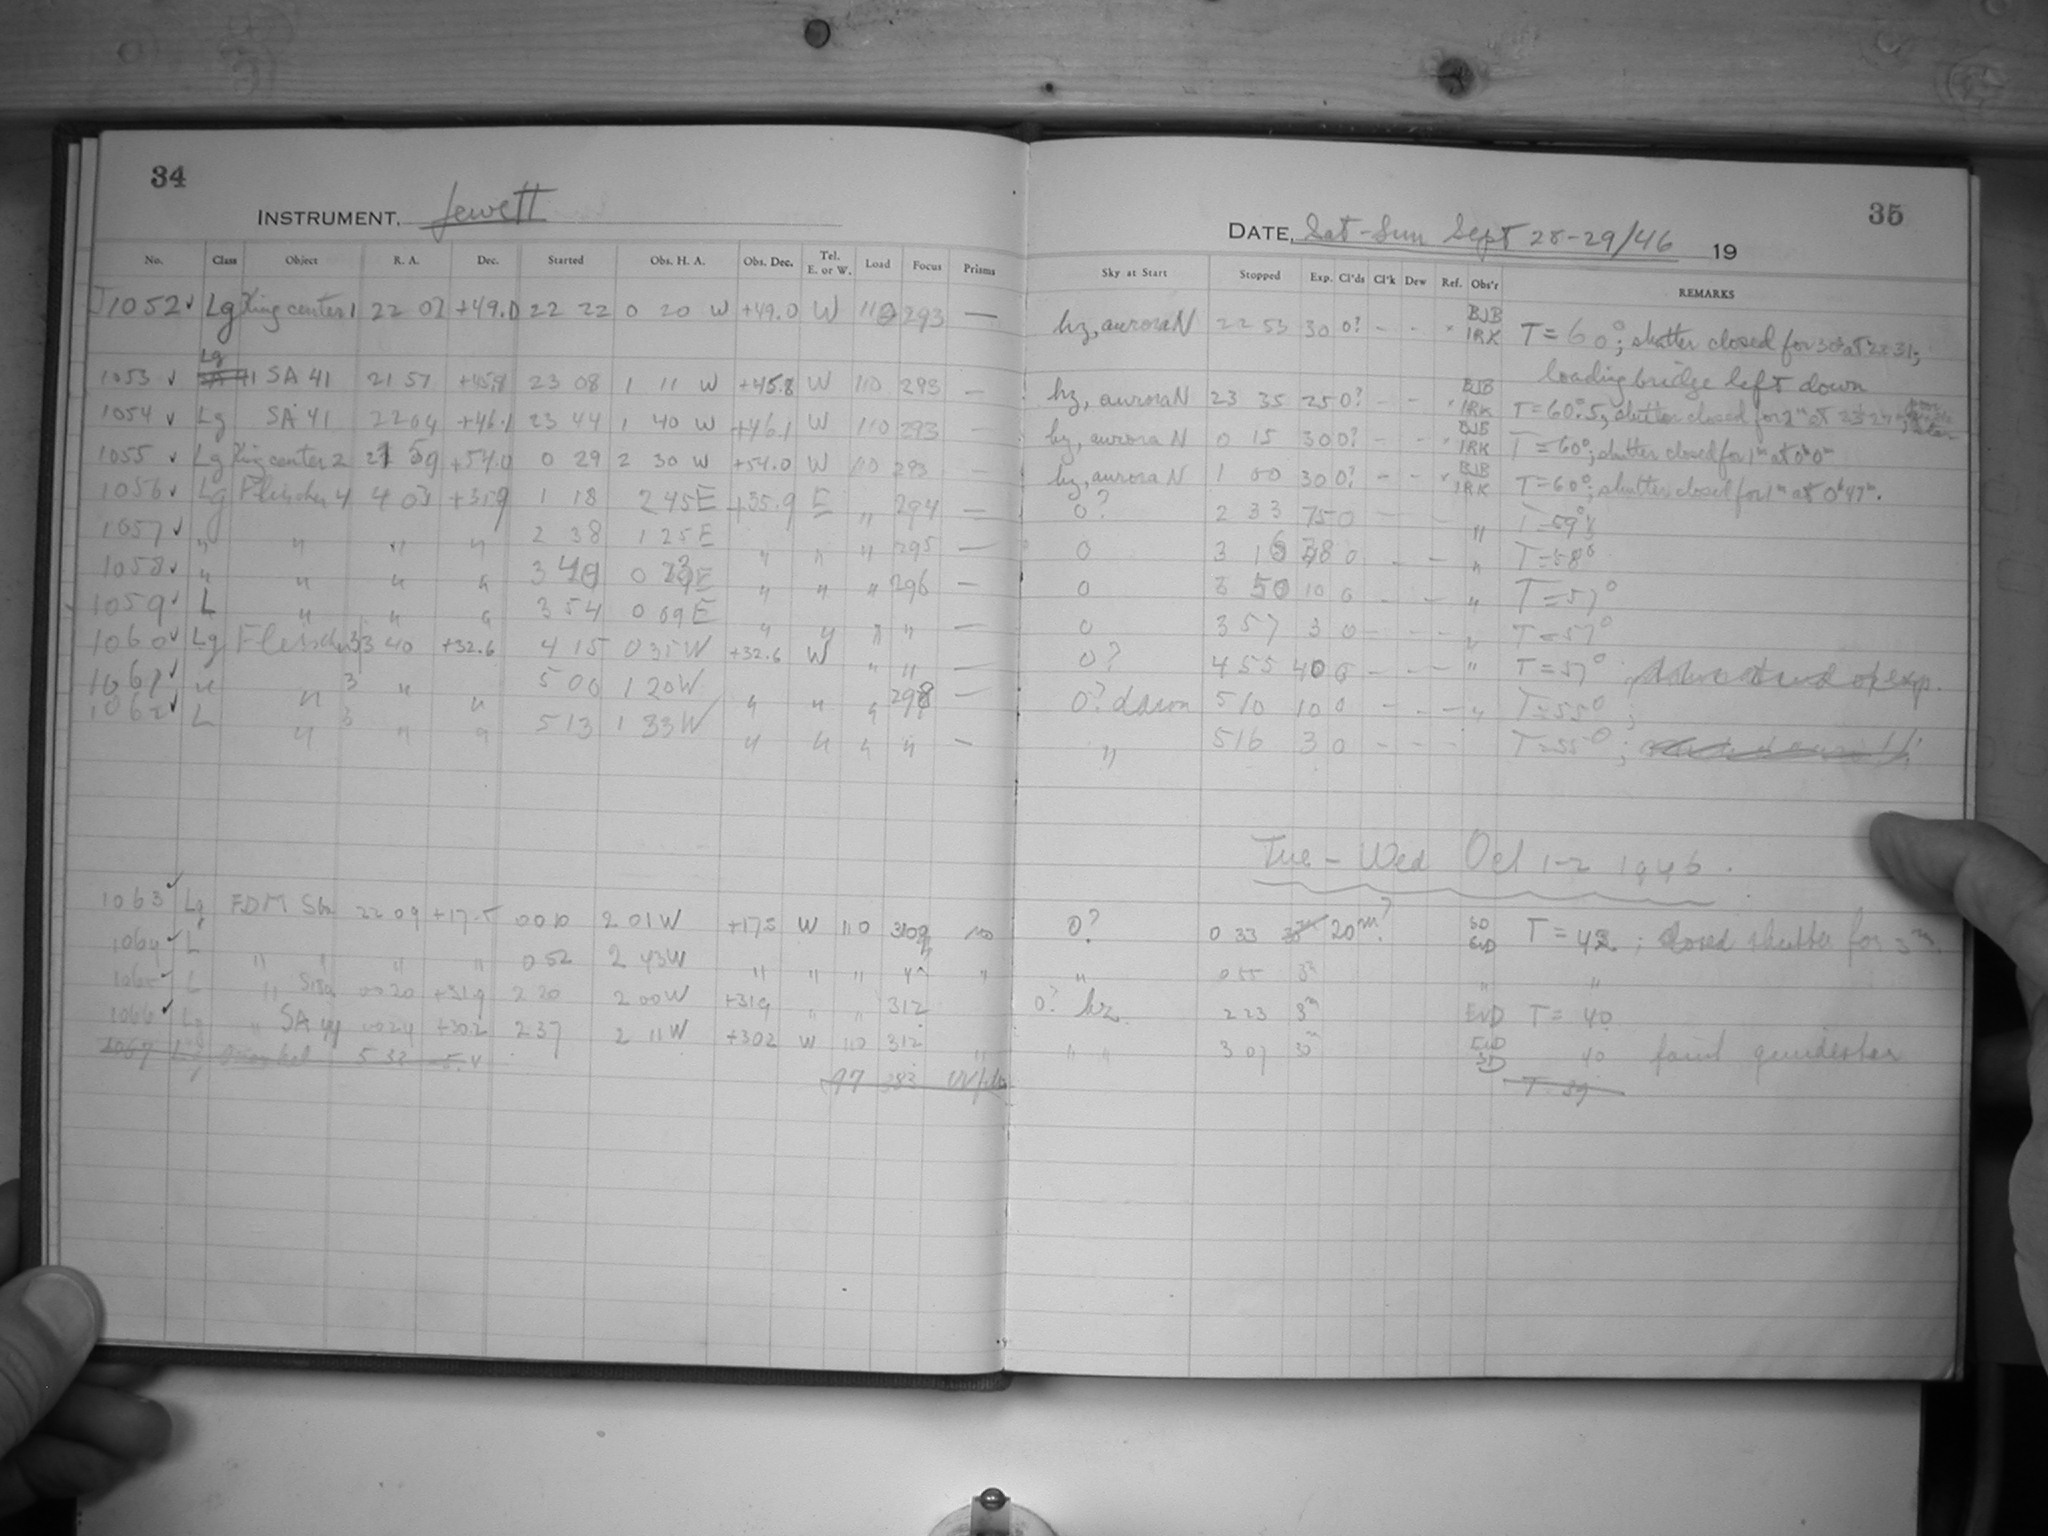 34
INSTRUMENT, Jewett
No. Class Object R. A. Dec. Started Obs. H. A. Obs. Dec. Tel. E. or W. Load Focus Prisms
J1052 ✓ Lg King center 1 22 02 +49.0 22 22 0 20 W +49.0 W 110 293 —
Lg
1053 ✓ SA 41 21 57 +45.8 23 08 1 11 W +45.8 W 110 293 —
1054 ✓ Lg SA 41 22 04 +46.1 23 44 1 40 W +46.1 W 110 293 —
1055 ✓ Lg King center 2 21 59 +54.0 0 29 2 30 W +54.0 W 110 293 —
1056 ✓ Lg Fleischer 4 4 03 +35.9 1 18 2 45 E +35.9 E " 294 —
1057 ✓ " " " " 2 38 1 25 E " " " 295 —
1058 ✓ " " " " 3 40 0 23 E " " " 296 —
1059 ✓ L " " " 3 54 0 09 E " " " " —
1060 ✓ Lg Fleischer 3 3 40 +32.6 4 15 0 35 W +32.6 W " " —
1061 ✓ " " 3 " " 5 00 1 20 W " " " 298 —
1062 ✓ L " 3 " " 5 13 1 33 W " " " " —
1063 ✓ Lg FDM 22 09 +17.5 00 10 2 01 W +17.5 W 110 310 no
1064 ✓ L " " " " 0 52 2 43 W " " " "
1065 ✓ L " 00 20 +31.9 2 20 2 00 W +31.9 " " 312
1066 ✓ Lg " SA 44 00 24 +30.2 2 37 2 11 W +30.2 W 110 312 "
1067 Lg 5 32 -5.4
35
DATE, Sat-Sun Sept 28-29/46 19
Sky at Start Stopped Exp. Cl'ds Cl'k Dew Ref. Obs'r REMARKS
hz, aurora N 22 53 30 0? - - BJB IRK T=60°; shutter closed for 30s at 22 31;
loading bridge left down
hz, aurora N 23 35 25 0? - - BJB IRK T=60°.5, shutter closed for 2m at
hz, aurora N 0 15 30 0? - - BJB IRK T=60°; shutter closed for 1m at 0h0m
hz, aurora N 1 00 30 0? - - BJB IRK T=60°; shutter closed for 1m at 0h47m.
0? 2 33 75 0 - - " T=59°
0 3 16 38 0 - - " T=58°
0 3 50 10 0 - - " T=57°
0 3 57 3 0 - - - " T=57°
0? 4 55 40 0 - - - " T=57°
0? dawn 5 10 10 0 - - - " T=55°;
" 5 16 3 0 - - - T=55°;
Tue - Wed Oct 1-2 1946.
0? 0 33 20m? SD EVD T = 42; closed shutter for 3m.
" 0 55 3m " "
0? hz 2 23 3m EVD T = 40
" " 3 07 30m EVD SD 40 faint guidestar
T = 39